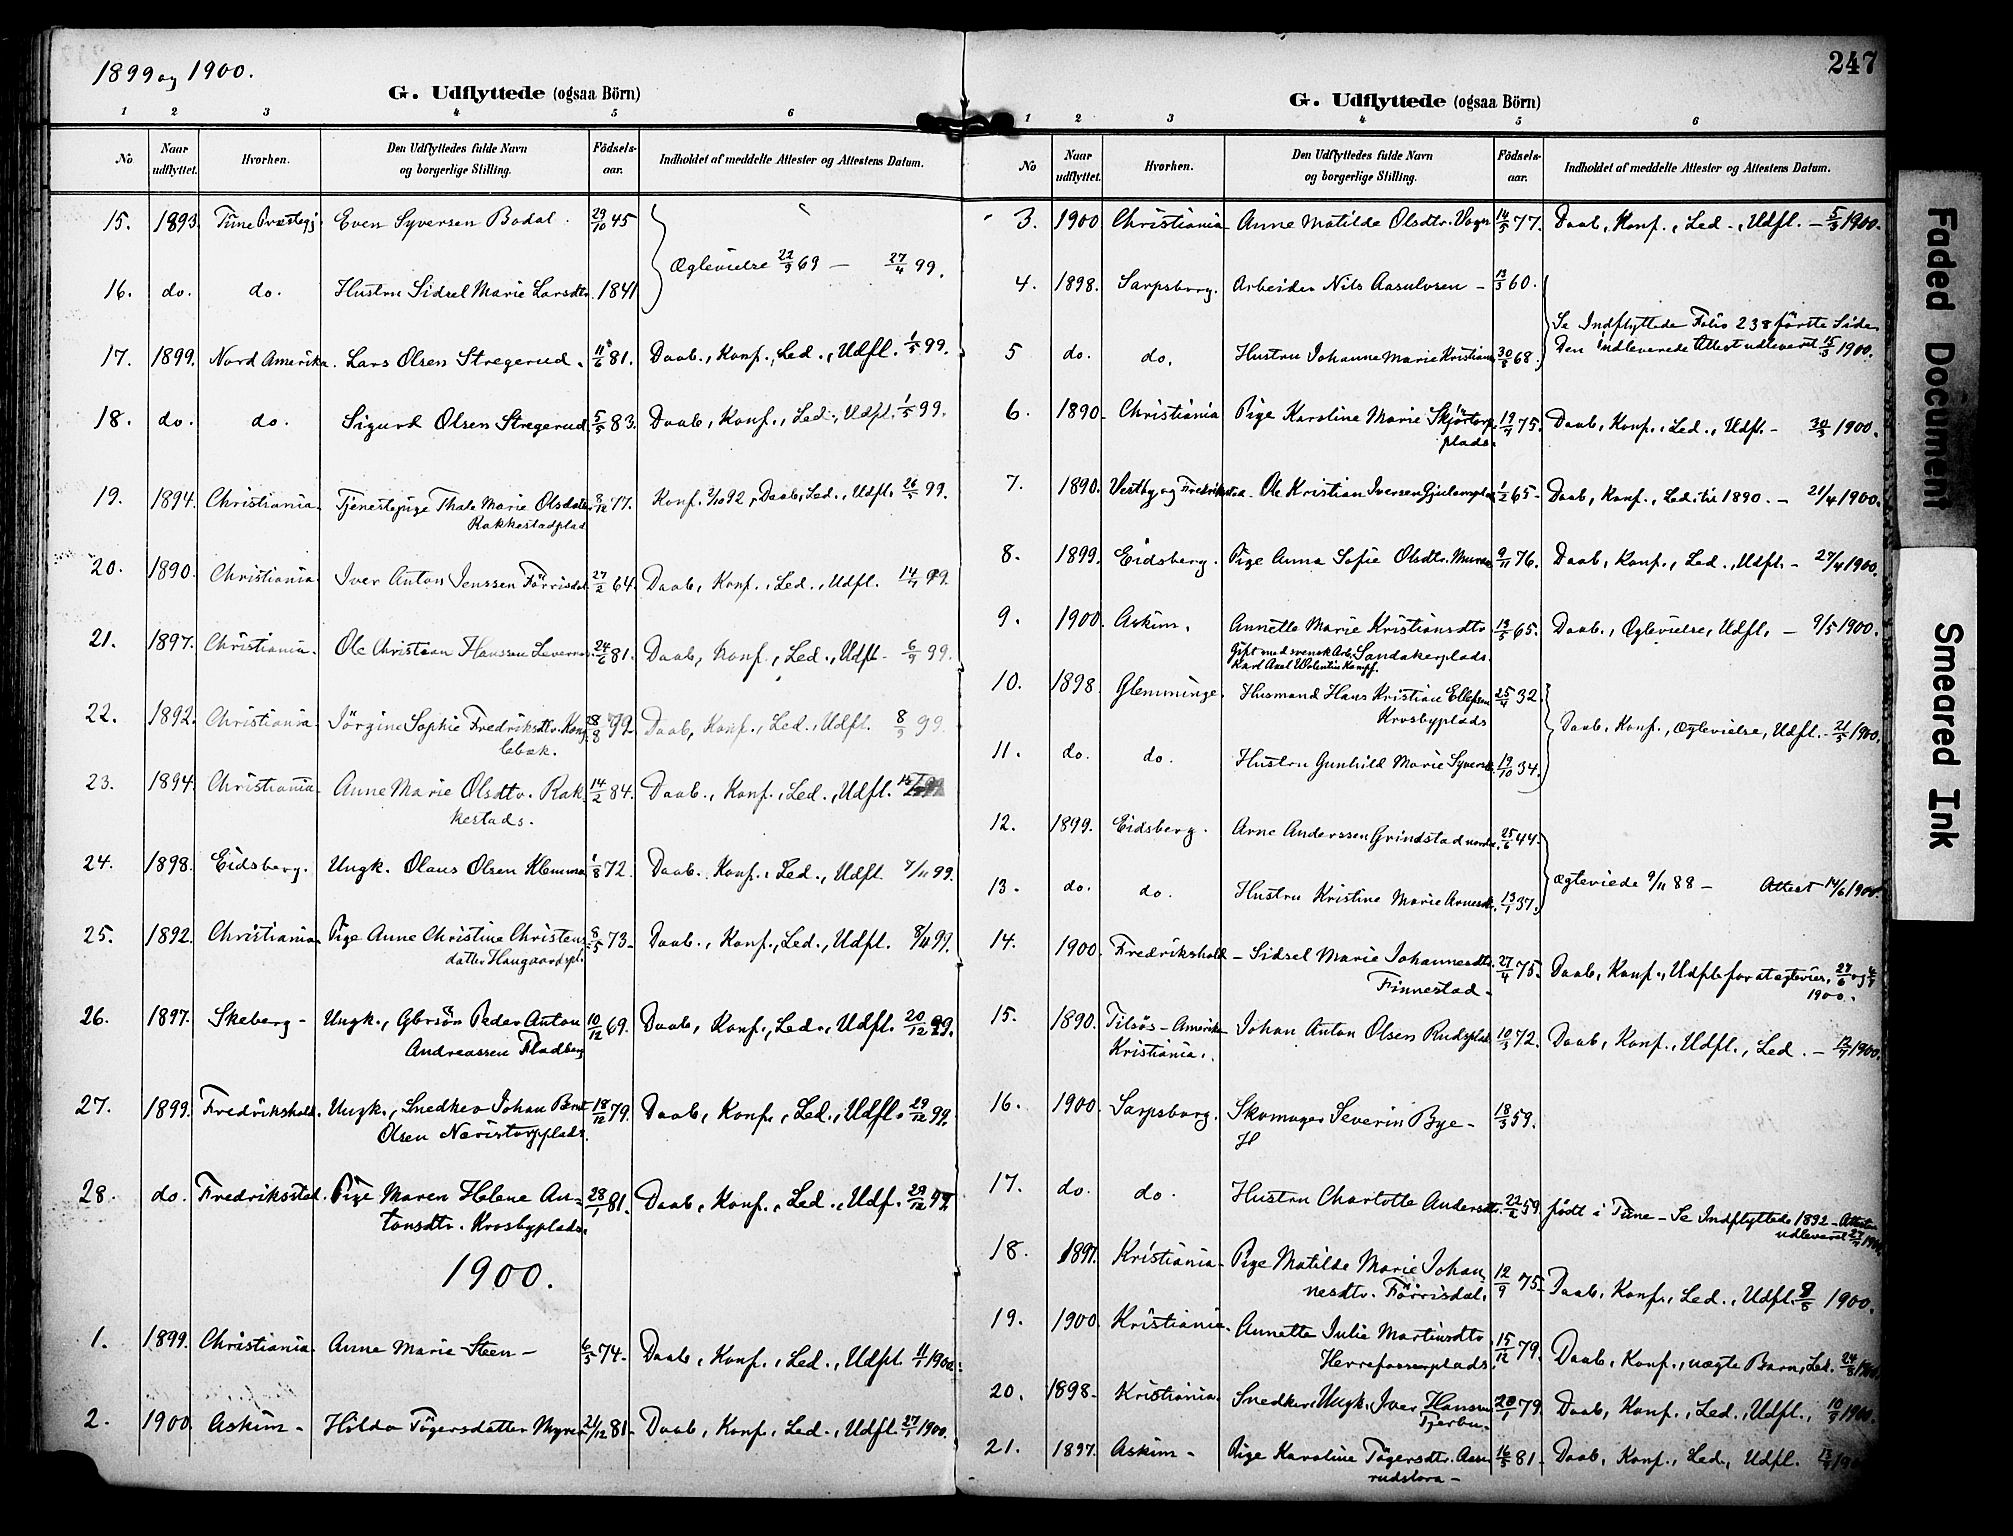 1899 og 1900.
G. Udflyttede (ogsaa Börn)
1 2 3 4 5 6
No Naar udflyttet. Hvorhen. Den Udflyttedes fulde Navn og borgerlige Stilling. Födsels-aar. Indholdet af meddelte Attester og Attestens Datum.
15. 1893. Tune Præstegj. Even Syversen Bodal. 29/10 45
Ægtevielse 22/9 69 — 27/4 99.
16. do. do. Hustru Sidsel Marie Larsdtr. 1841
17. 1899. Nord Amerika. Lars Olsen Stregerud. 11/6 81. Daab., Konf., Led., Udfl. 1/5 99.
18. do. do. Sigurd Olsen Stregerud. 5/5 83. Daab, Konf., Led., Udfl. 1/5 99.
19. 1894. Christiania. Tjenestepige Thale Marie Olsdatter 8/12 77. Konf. 2/10 92, Daab, Led., Udfl. 26/5 99.
Rakkestadplad
20. 1890. Christiania Iver Anton Jenssen Förrisdal 27/2 64. Daab, Konf., Led., Udfl. 14/7 99.
21. 1897. Christiania. Ole Christian Hanssen 24/6 81. Daab, Konf., Led., Udfl. 6/9 99.
22. 1892. Christiania. Jörgine Sophie Fredriksdtr. Kong
lebæk. Daab, Konf., Led., Udfl. 8/9 99.
23. 1894. Christiania. Anne Marie Olsdtr. Rak 14/2 84. Daab., Konf., Led., Udfl.
kestads.
24. 1898. Eidsberg. Ungk. Olaus Olsen Klemma 1/8 72. Daab. Konf., Led., Udfl. 7/11 99.
25. 1892. Christiania. Pige Anne Christine Christens 8/5 73. Daab., Konf., Led., Udfl. 8/11 99.
datter Haugaardspl.
26. 1897. Skeberg. Ungk., Gbrsön Peder Anton 10/12 69. Daab, Konf., Led., Udfl. 20/12 99.
Andreassen Fladberg
27. 1899. Fredrikshald. Ungk., Snedker Johan Bernt 18/12 79. Daab, Konf., Led., Udfl. 29/12 99.
Olsen Neristorpplads.
28. do. Fredriksstad. Pige Maren Helene An- 28/1 81. Daab, Konf., Led., Udf. 29/12 99.
tonsdtr. Krosbyplads.
1900.
1. 1899. Christiania Anne Marie Steen — 6/5 74. Daab, Konf., Led., Udfl. 11/1 1900.
2. 1900 Askim — Hilda Tögersdatter Myrer 21/12 81. Daab, Konf., Led., Udfl. 27/1 1900.
247
G. Udflyttede (ogsaa Börn)
1 2 3 4 5 6
No Naar udflyttet. Hvorhen. Den Udflyttedes fulde Navn og borgerlige Stilling. Födsels-aar. Indholdet af meddelte Attester og Attestens Datum.
3. 1900 Christiania Anne Matilde Olsdtr. 14/5 77. Daab, Konf., Led., Udfl. — 5/3 1900.
4. 1898. Sarpsborg. Arbeider Nils Aasulvsen — 13/3 60.
Se Indflyttede Folio 238 første Side
Den indleverede Attest udleveret 15/3 1900.
5 do. do. Hustru Johanne Marie Kristians 68.
6. 1890. Christiania Pige Karoline Marie Skjörtorp 75. Daab, Konf., Led., Udfl. — 30/3 1900.
plads.
7. 1890. Vestby og Fredrikstad. Ole Kristian Iversen 1/2 65. Daab, Konf., Led. til 1890. — 21/4 1900.
8. 1899. Eidsberg. Pige Anna Sofie Olsdtr. 9/11 76. Daab, Konf., Led., Udfl. — 27/4 1900.
9. 1900. Askim. Annette Marie Kristiansdtr. 13/5 65. Daab., Ægtevielse, Udfl. — 9/5 1900.
Gift med svensk Arb. Sandakerplads.
Karl Axel Valentin Kempf.
10. 1898. Glemminge. Husmand Hans Kristian Ellefsen 25/4 32.
Krosbyplads
Daab, Konf., Ægtevielse, Udfl. 21/5 1900.
11. do. do. Hustru Gunhild Marie Syversd. 19/10 34.
12. 1899. Eidsberg. Arne Anderssen Grindstad nordre 25/6 44.
Ægteviede 9/11 88 — Attest 14/6 1900.
13. do. do. Hustru Kristine Marie Arnesdtr. 13/1 37.
14. 1900. Fredrikshald — Sidsel Marie Johannesdtr. 27/4 75. Daab, Konf., Udfl. for at ægtevies, 27/6 og
Finnestad. 1900.
15. 1890. Tilsøs — Amerika Johan Anton Olsen Rudsplad. 10/3 72. Daab, Konf., Udfl., Led. — 12/7 1900.
Kristiania.
16. 1900. Sarpsborg. Skomager Severin Bye — 18/3 59.
H
17. do. do. Hustru Charlotte Andersdtr. 22/2 59. født i Tune — Se Indflyttede 1892 — Attesten
udleveret
18. 1897. Kristiania Pige Matilde Marie Johan 12/9 75. Daab, Konf., Led., Udfl. 1900.
nesdtr. Förrisdal.
19. 1900. Kristiania. Annette Julie Martinsdtr. 15/12 79. Daab, Konf., uægte Barn, Led. 24/8 1900.
Herrefosserplads.
20. 1898. Kristiania. Snedker, Ungk. Iver Hansen 20/1 79. Daab, Konf., Led., Udfl., 10/9 1900.
21. 1897. Askim — Pige Karoline Tögersdtr. Aase 16/5 81. Daab, Konf., Led., Udfl.
rudstora —
Faded Document
Smeared Ink